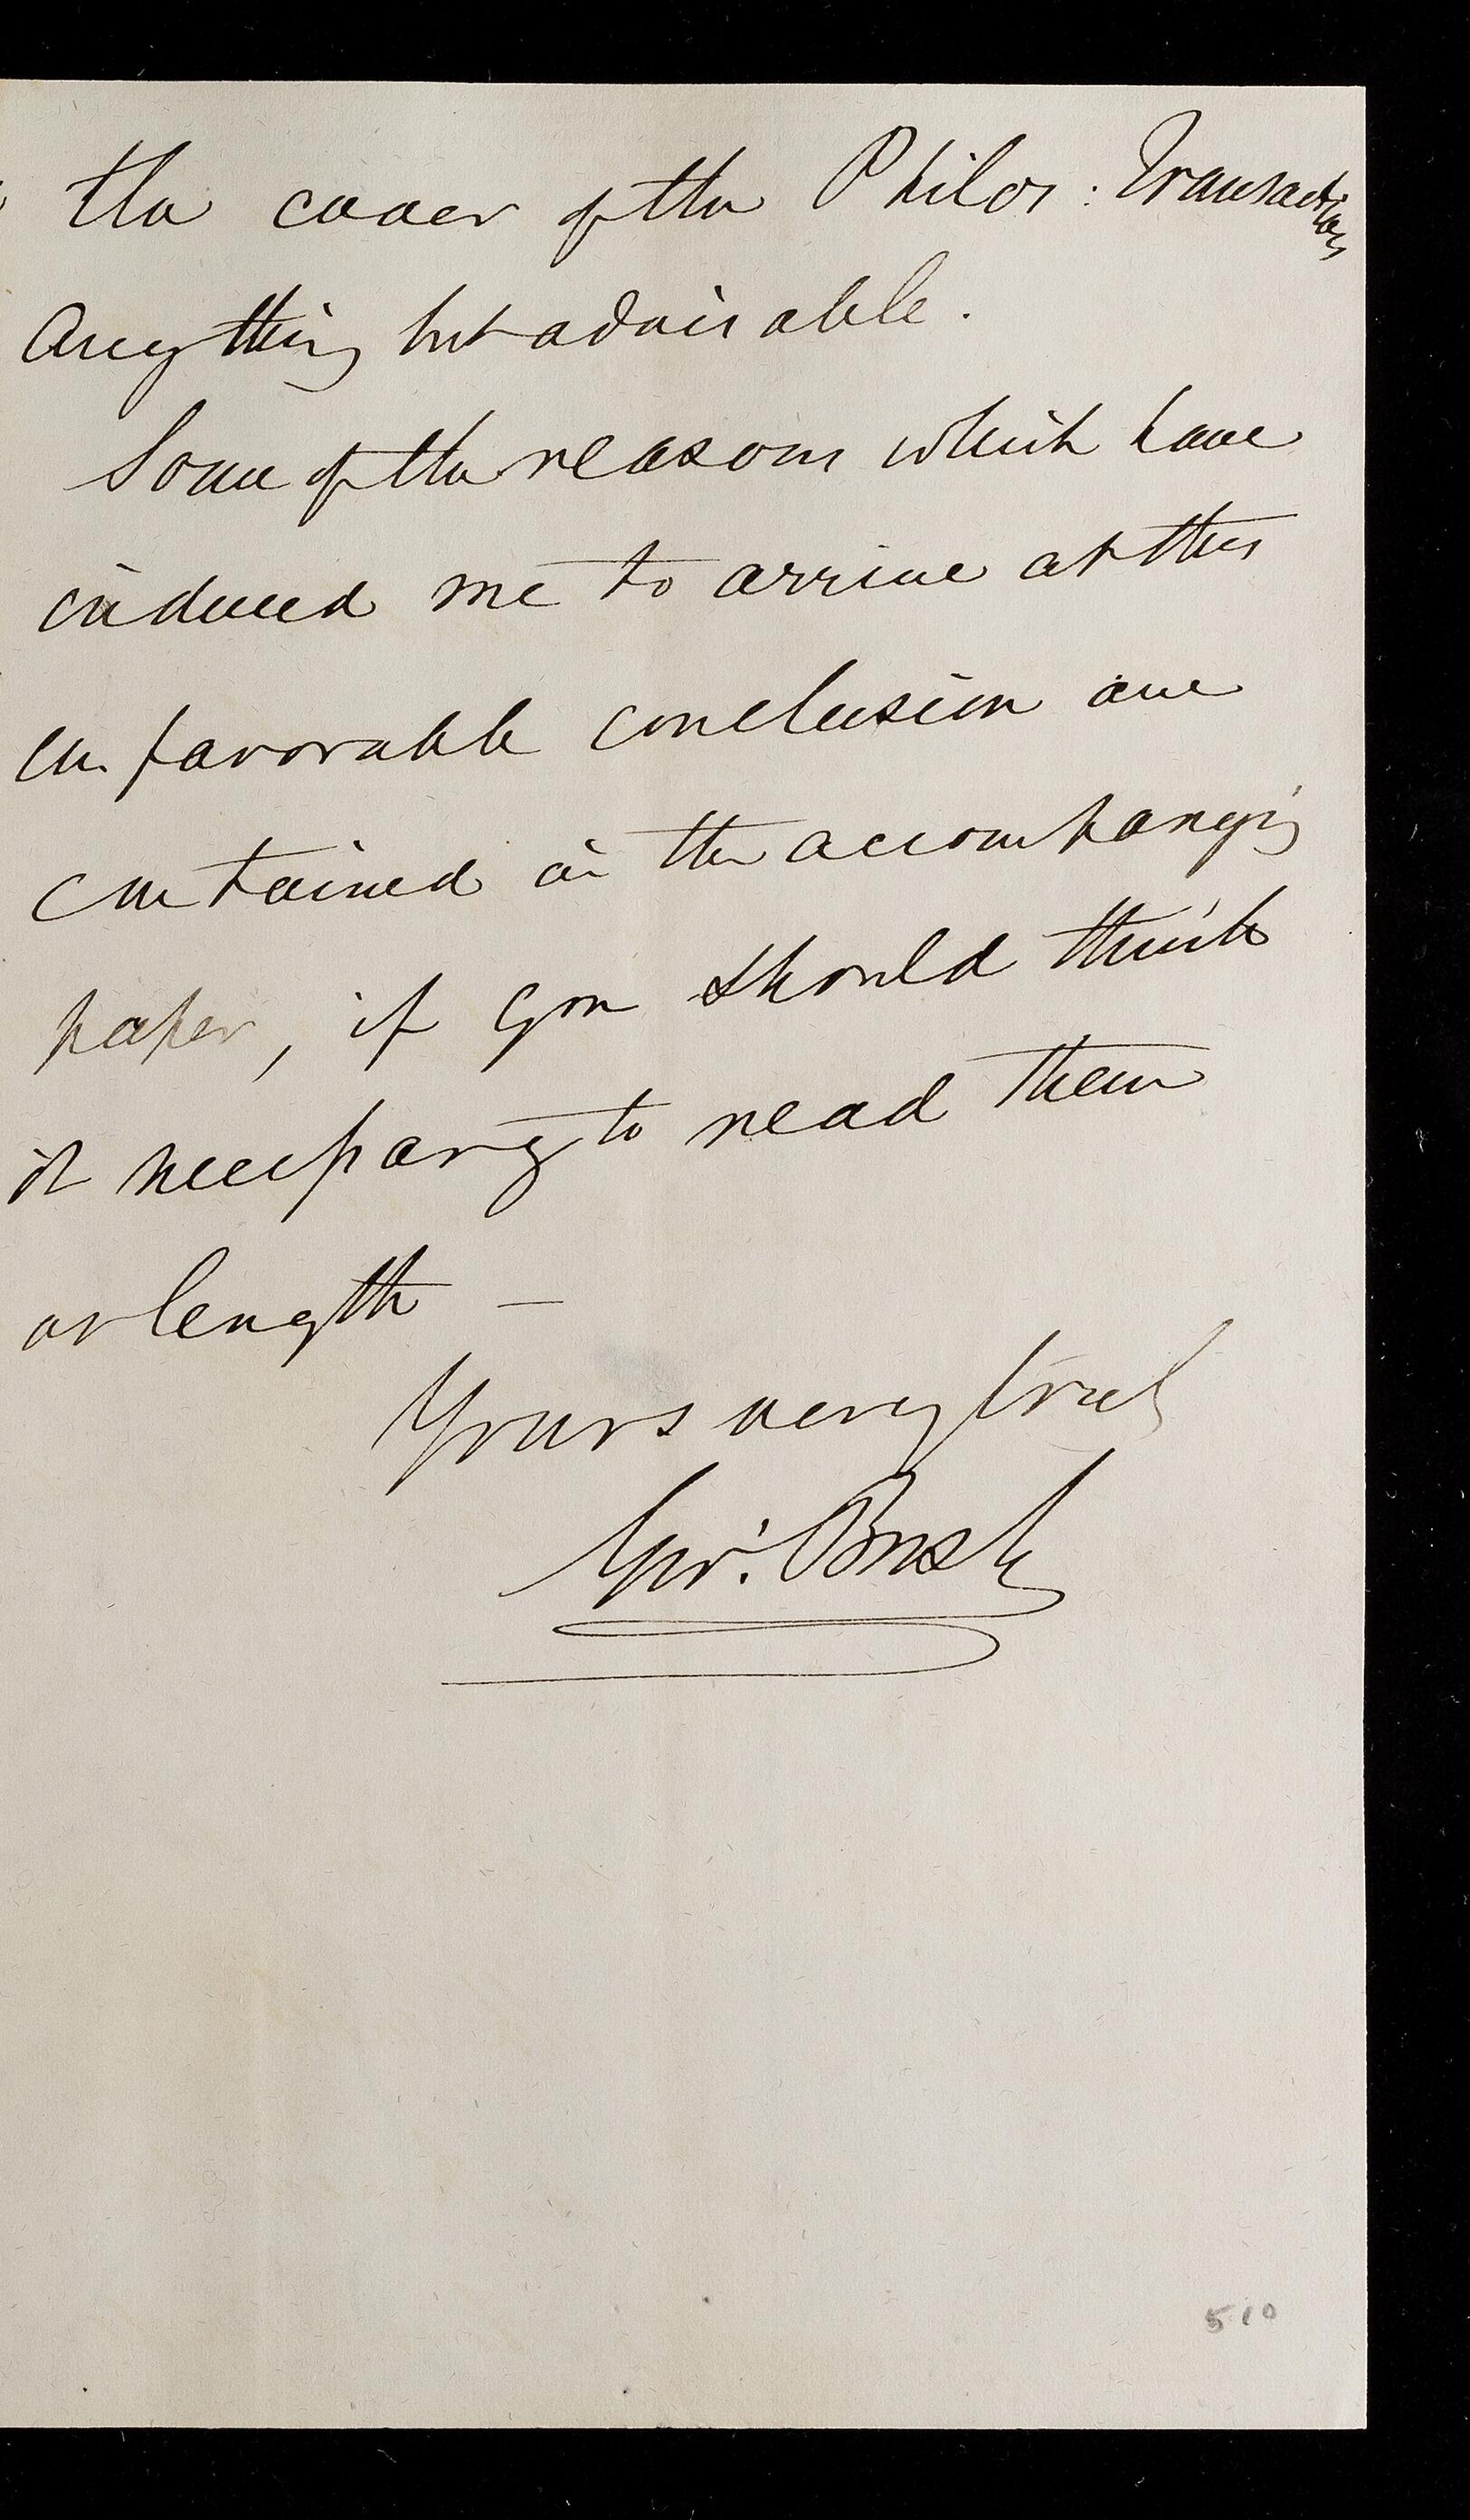 the cover of the Philos: Transactions
Anything but advisable.
Some of the reasons which have
induced me to arrive at this
unfavorable conclusion are
contained in the accompanying
paper, if you should think
it necessary to read them
at length —
Yours very truly
Geo: Busk
510